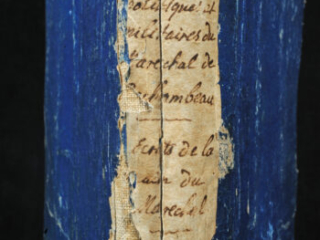 politique et
militaires du
Marechal de
Rochambeau
Ecrits de la
main du
Marechal